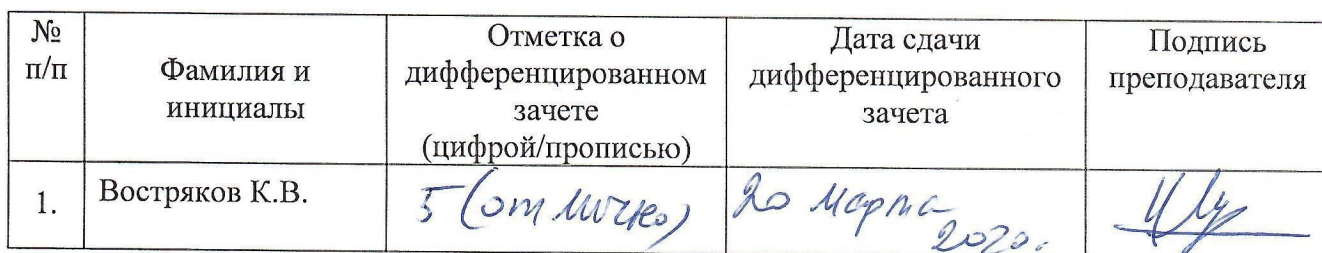 № п/п
Фамилия и инициалы
Отметка о дифференцированном зачете (цифрой/прописью)
Дата сдачи дифференцированного зачета
Подпись преподавателя
1.
Востряков К.В.
5 (отлично)
20 марта 2020.